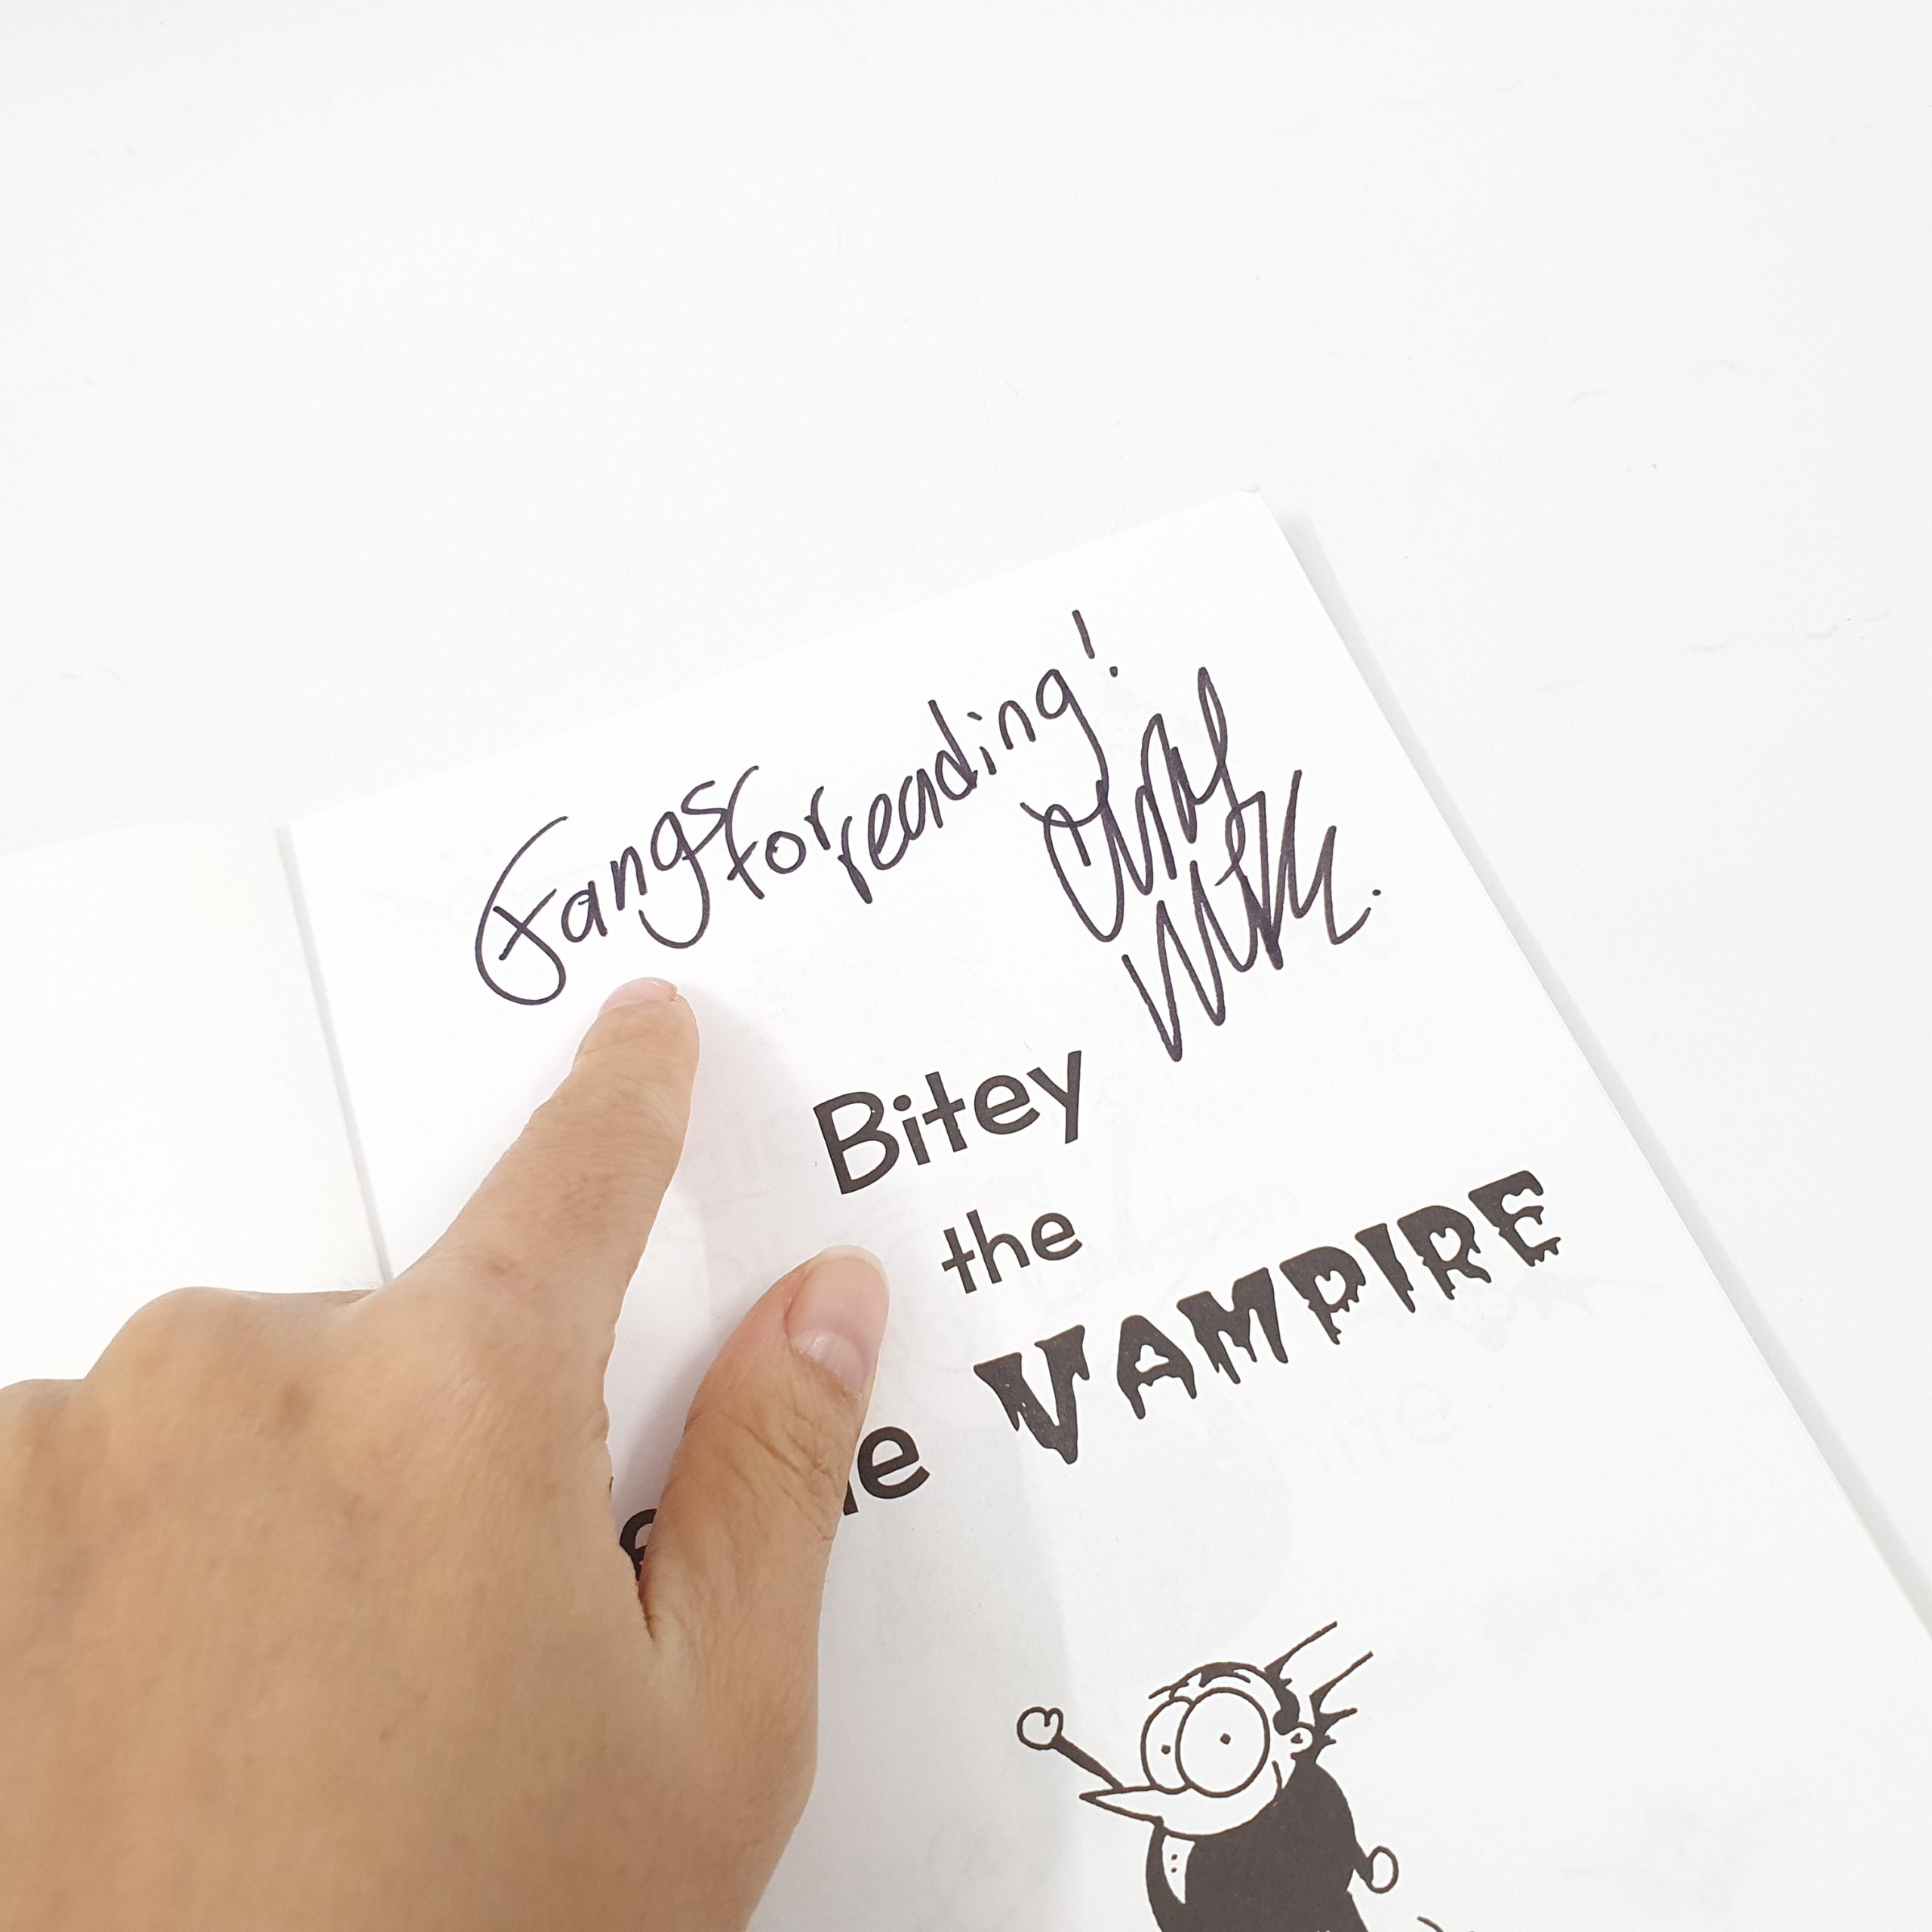 Fangs for reading!
Bitey
the
VAMPIRE